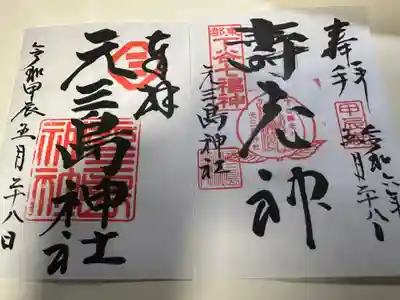 奉拝
元三島神社
令和甲辰五月二十八日
奉拝
東都
下谷七福神
寿老神
元三島神社
甲辰
令和六年
五月二十八日